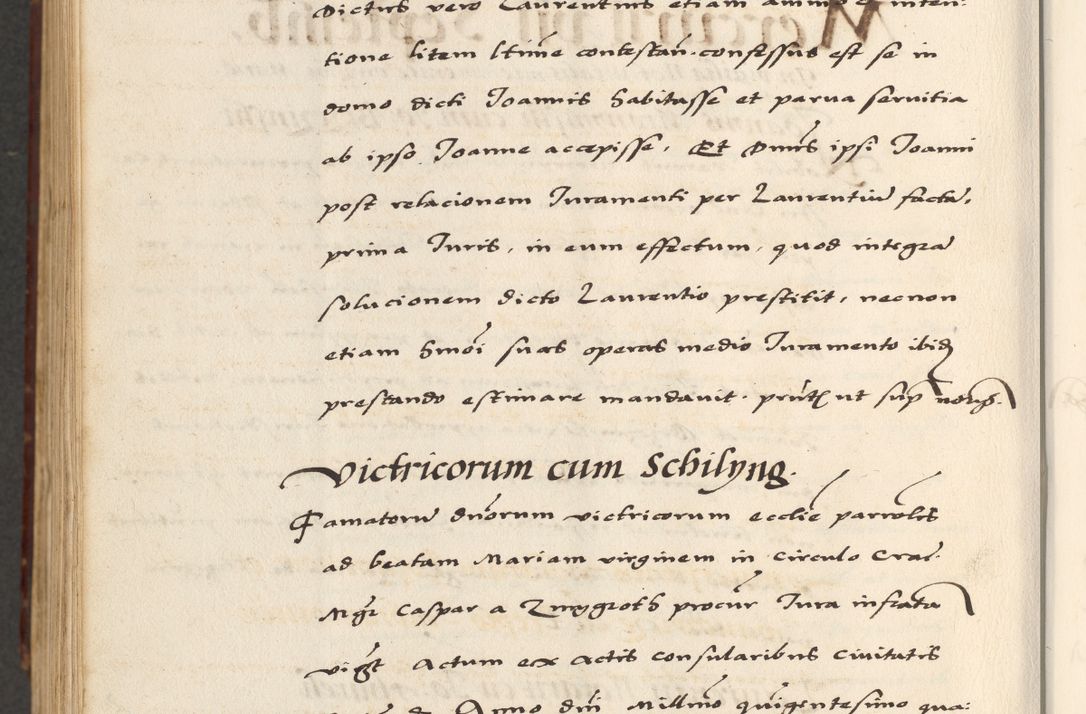 Dictus vero Laurentius etiam animo et inten:
tione litem ltime contestan. confessus est se in
domo dicti Joannis habitasse et parua seruitia
ab ipso Joanne accepisse, Et Dnus ipsi Joanni
post relacionem Juramenti per Laurentiu facta,
prima Juris, in eum effectum, quod integra
solucionem dicto Laurentio prestitit, necnon
etiam hmoi suas operas medio Juramento ibid
prestando estimare mandauit. pnt ut sup
Victricorum cum Schilyng.
Famatoru dnorum victricorum ecclie parrolis
ad beatam Mariam virginem in Circulo Crac.
Mgr Caspar a Zmygroth procur Jura infrata
Actum ex Actis Consularibus Ciuitatis
Anno dni Millmo quigentesimo qua: